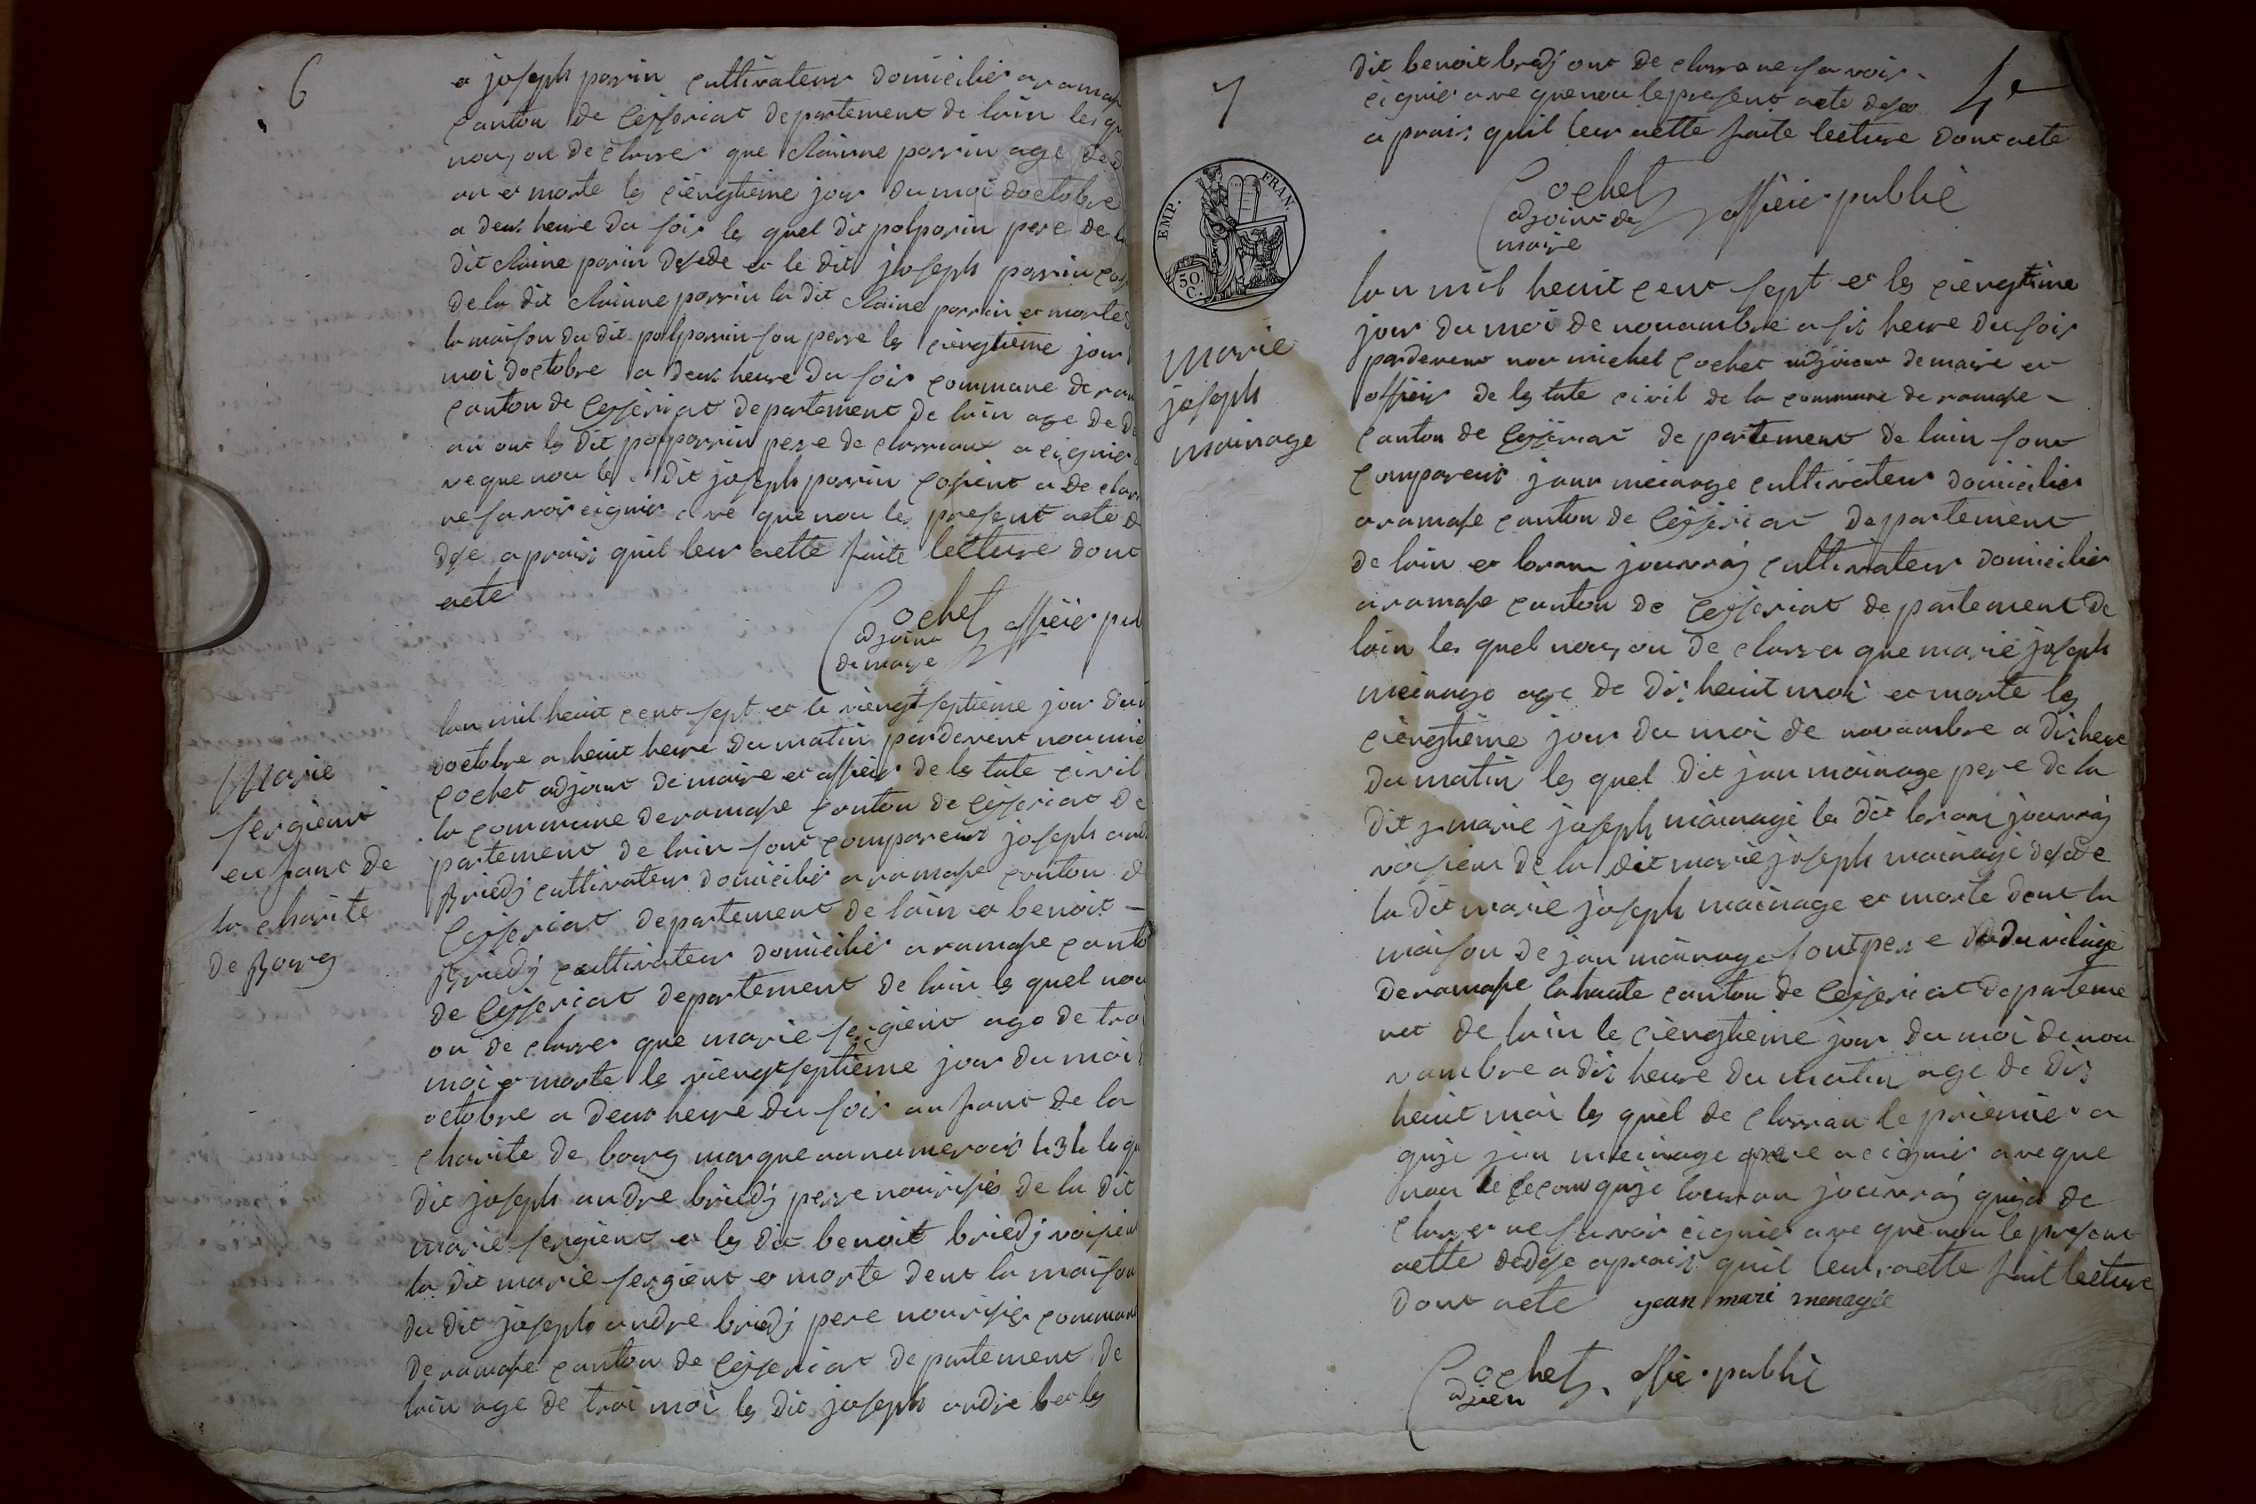 6
e joseph parrin cultivateur domicilier a ramase
canton de Ceyseriat departement de lain les qu
nous on declarrer que Clainne parrin age de d
an et morte le ciengtieme jour du moi doctobre
a deux heure du soir les quel dit polparin pere de la
dit Claine parin desede et le dit joseph parrin cos
de la dit Clainne parrin la dit Claine parrin et morte
la maison du dit polparrin son perre le ciengtieme jour
moi doctobre a deux heure du soir commune de ram
canton de Ceyseriat departement de lain age de d
an ont les dit polparrin pere de clarraux a cignier
veque nou les dit joseph parrin cosient a de clar
ne savoir cignier a ve que nou les present acte d
dse aprais quil leur aette faite lecture dont
acte
Cochet officier pub
adjoint
de maire
Marie
sergient
en fant de
la charite
de Bourg
lan mil heuit cent sept et le viengt septieme jour du
doctobre a heuit heure du matin pardevent nou mic
cochet adjoint de maire et officier de les tate civil
la commune de ramase canton de Ceyseriat de
partement de lain sont compareus joseph and
Briedj cultivateur domicilier a ramase canton d
Ceyseriat departement de lain e benoit
Briedj cultivateur domicilier a ramase canto
de Ceyseriat departement de lain les quel nou
on de clarrer que marie sergient age de troi
moi e morte le viengt septieme jour du moi
octobre a deux heure du soir anfant de la
charite de bourg marque au numeroix 434 le qu
dit joseph andre briedj perre nourisier de la dit
marie sergient e les dit benoit briedj voisien
la dit marie sergient e morte dent la maison
du dit joseph andre briedj pere nourisier commun
de ramase canton de Ceyseriat departement de
lain age de troi moi les dit joseph andre be les
7
4e
dit benoit bredj ont de clarra ne savoir
cignier a ve que nou le present acte dese
aprais quil leur aette faite lecture dont acte
Cochet officier public
adjoint de
maire
EMP. FRAN.
50 C.
Marie
joseph
mainage
lan mil heuit cent sept et les ciengtime
jour du moi de novambre a sis heure du soir
pardevent nou michel Cochet adjoient de maire et
officier de les tate civil de la commune de ramase
canton de Ceyseriat departement de lain sont
compareus jean meinage cultivateur domicilier
a ramase canton de Ceyseriat departement
de lain e loran jouvraj cultivateur domicilier
a ramase canton de Ceyseriat departement de
lain les quel nous on de clarrer que marie joseph
meinage age de dis heuit moi et morte les
ciengtieme jour du moi de novambre a dis heure
du matin les quel dit jan mainage pere de la
dit marie joseph mainage les dit loran jouvraj
voisien de la dit marie joseph mainage desede
la dit marie joseph mainage et morte dent la
maison de jan mainage sont pere du vilage
de ramase la haute canton de Ceyseriat departeme
nt de lain le ciengtieme jour du moi de nou
vambre a dis heure du matin age de dis
heuit moi les quel de clarrau le priemier a
quje jan meinage pere a cignier aveque
nou le cecont quje louran jouvraj quja de
clarer ne savoir cignier a ve que nou le present
aette dedse aprais quil leur aette fait lecture
dont acte jean mari menagée
Cochet officie public
adjien